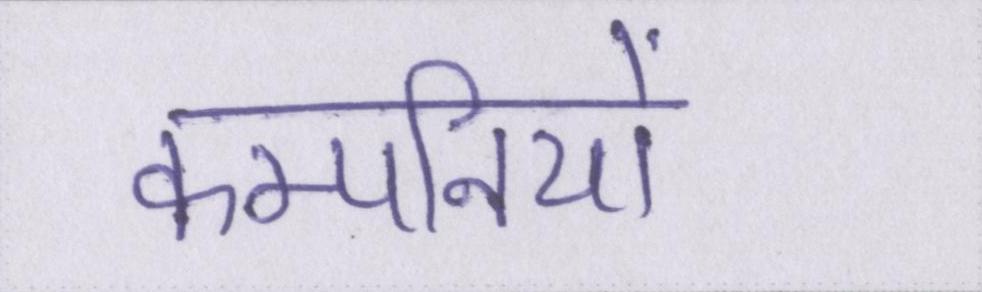 कम्पनियों